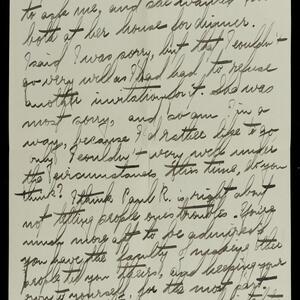 to ask me, and she wanted
both at her house for dinner.
I said I was sorry, but that I couldn't
go very well as I had had to refuse
another invitation for it. She was
most sorry, and so am I in a
way, because I'd rather like to go
only I couldn't very well under
the circumstances this time, do you
think? I think Paul R. is right about
not telling people ones troubles. You're
much more apt to be admired if
you have the faculty of making other
people tell you theirs, and keeping your
own to yourself, for the most part.